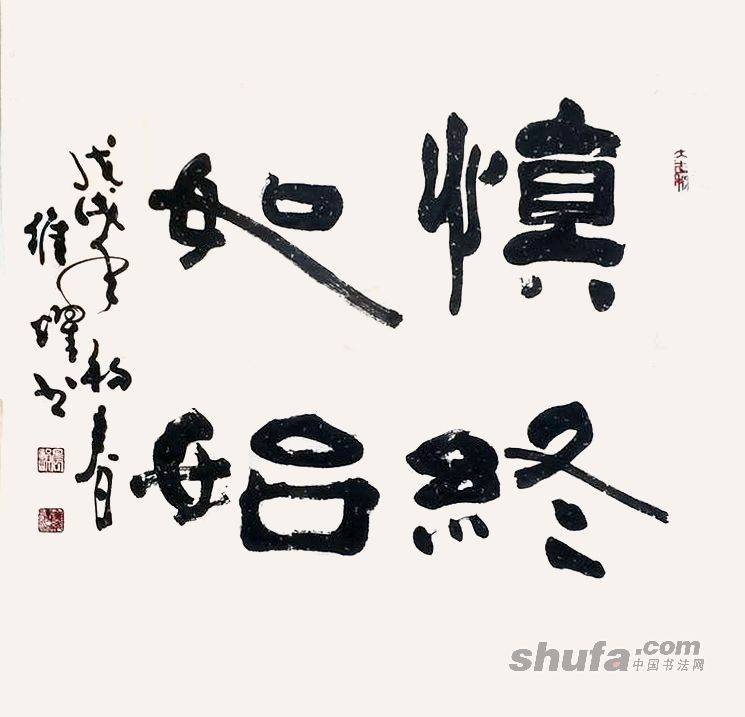 慎終
如始
戊戌年初春
維燿书
shufa.com
中国书法网